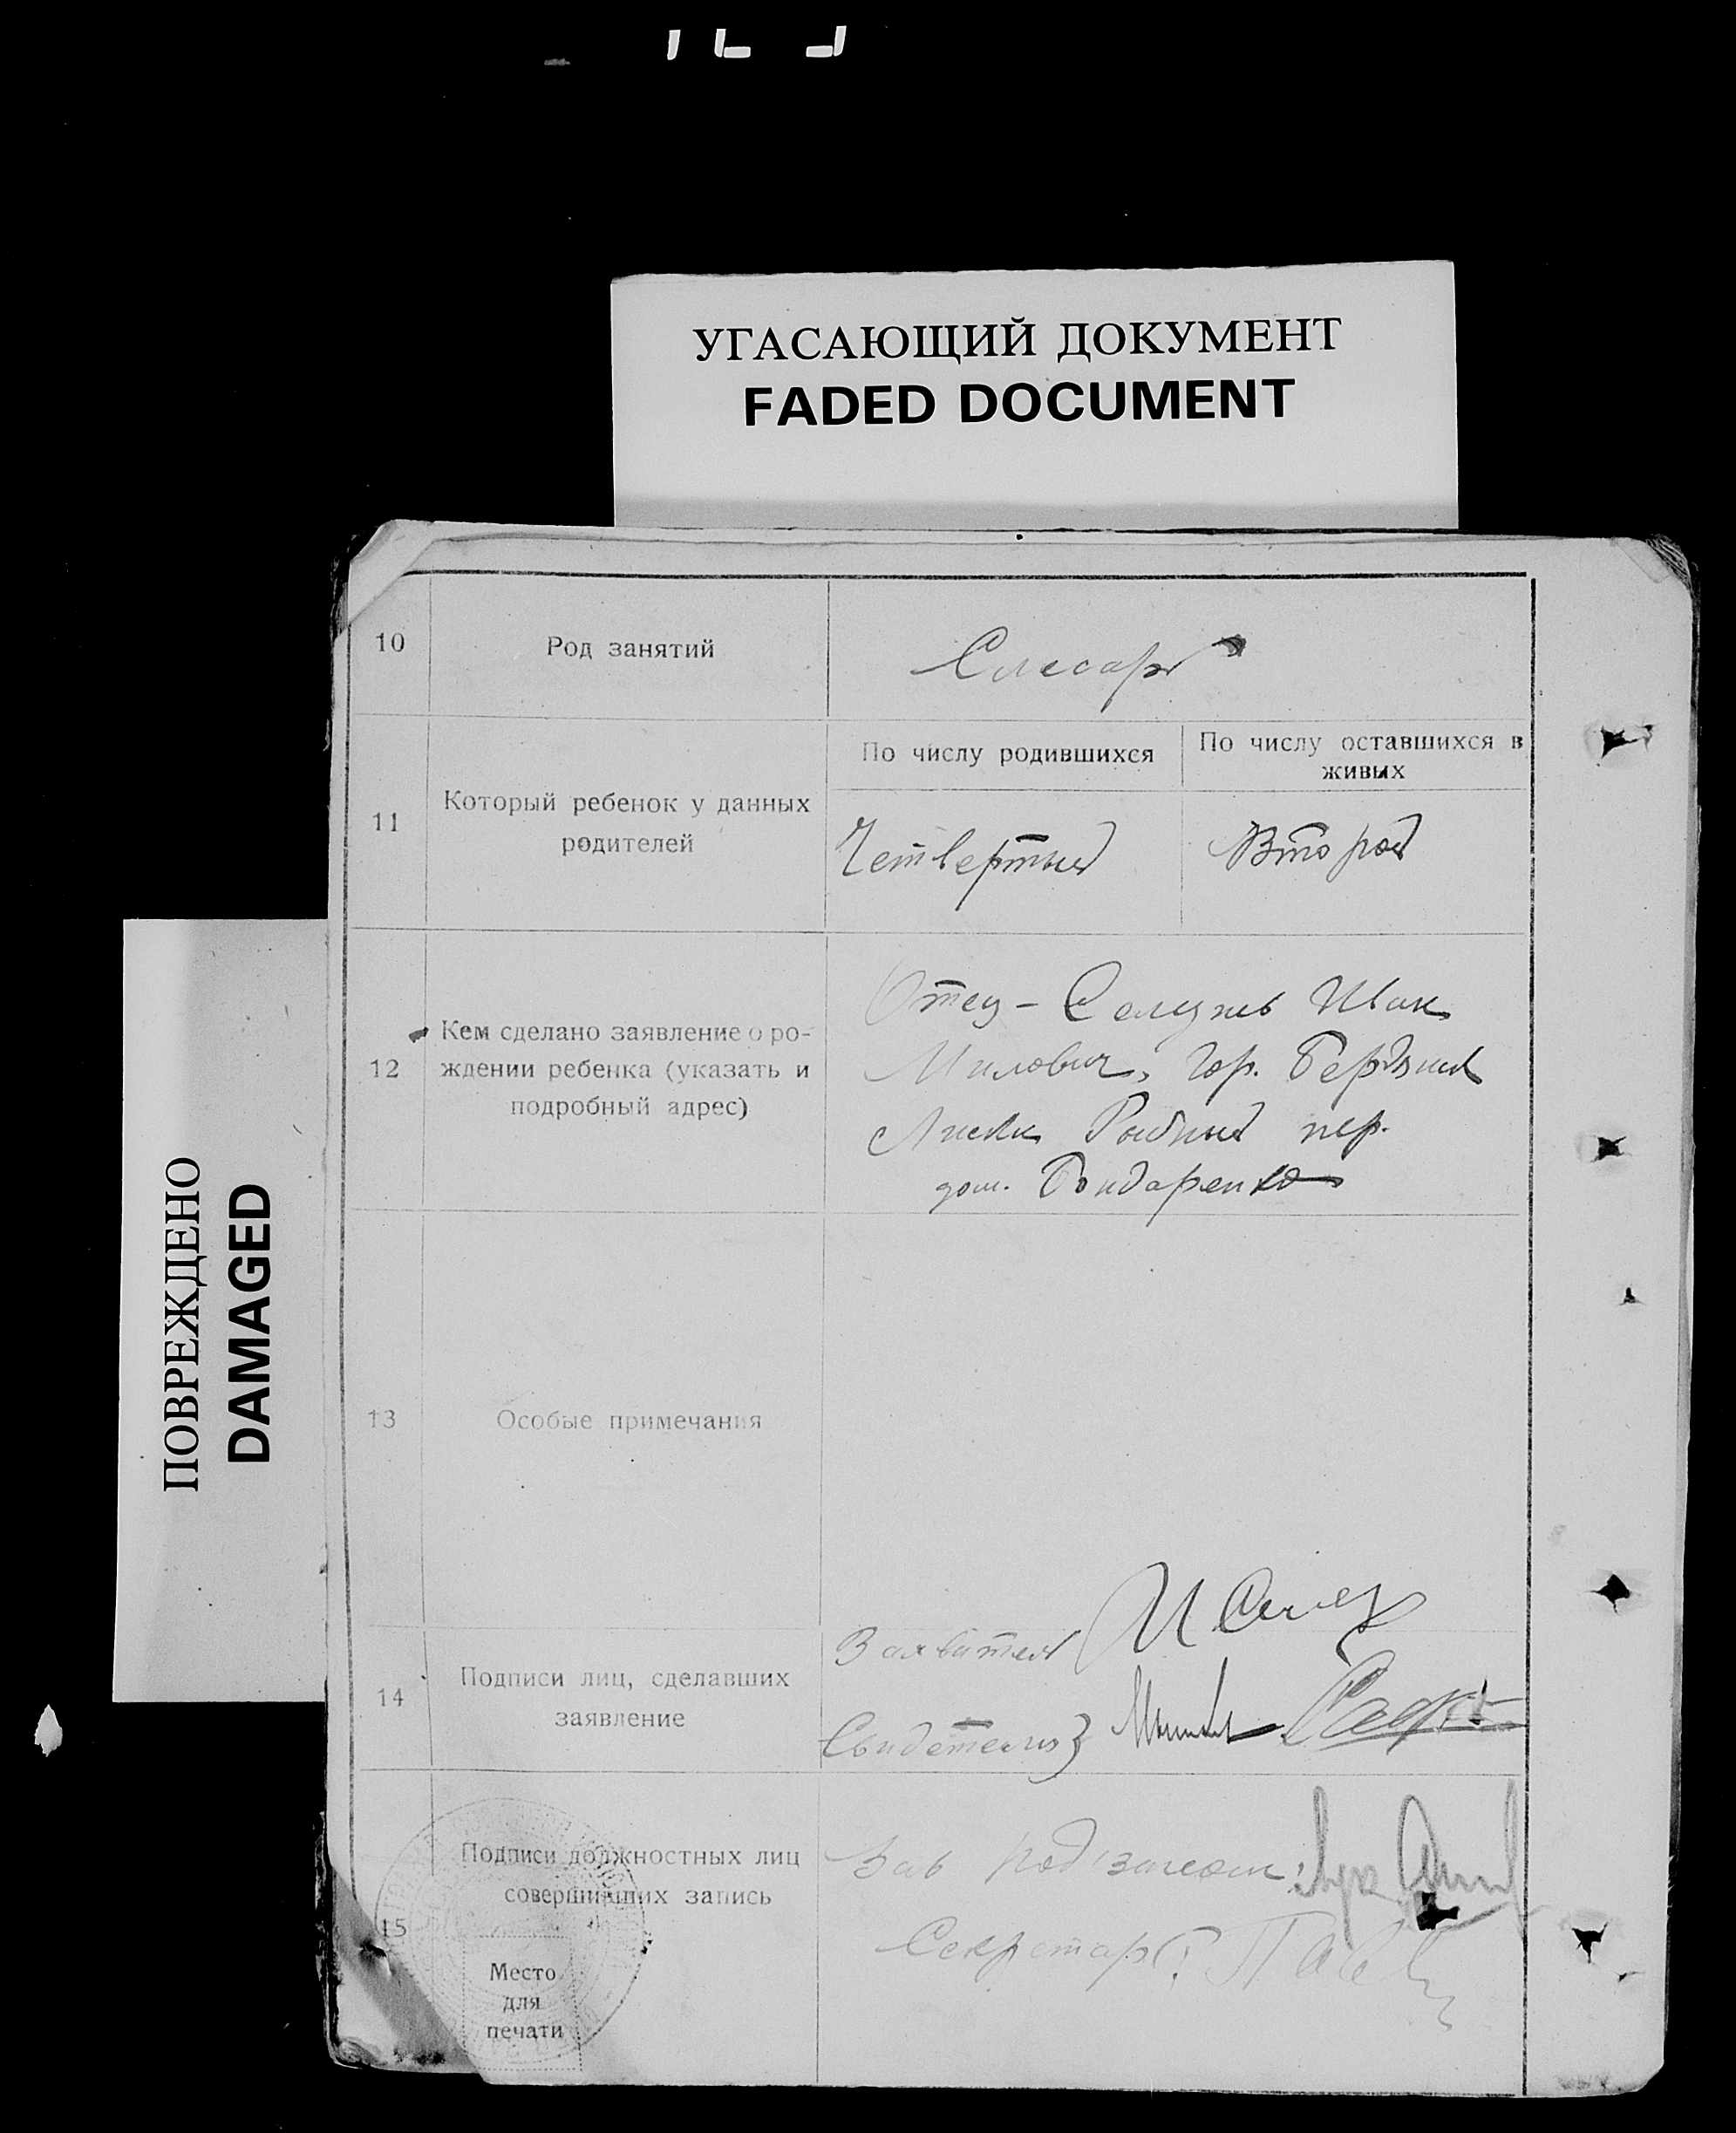 УГАСАЮЩИЙ ДОКУМЕНТ
FADED DOCUMENT
ПОВРЕЖДЕНО
DAMAGED
10
Род занятий
Слесарь
11
Который ребенок у данных
родителей
По числу родившихся
По числу оставшихся в
живых
Четвертый
Второй
12
Кем сделано заявление о ро-
ждении ребенка (указать и
подробный адрес)
Отец - Иван
гор. Бердянск
Лиски Рыбный пер.
дом. Бондаренко
13
Особые примечания
14
Подписи лиц, сделавших
заявление
Заявитель
Свидетели
15
Подписи должностных лиц
совершивших запись
Место
для
печати
Зав
Секретарь: